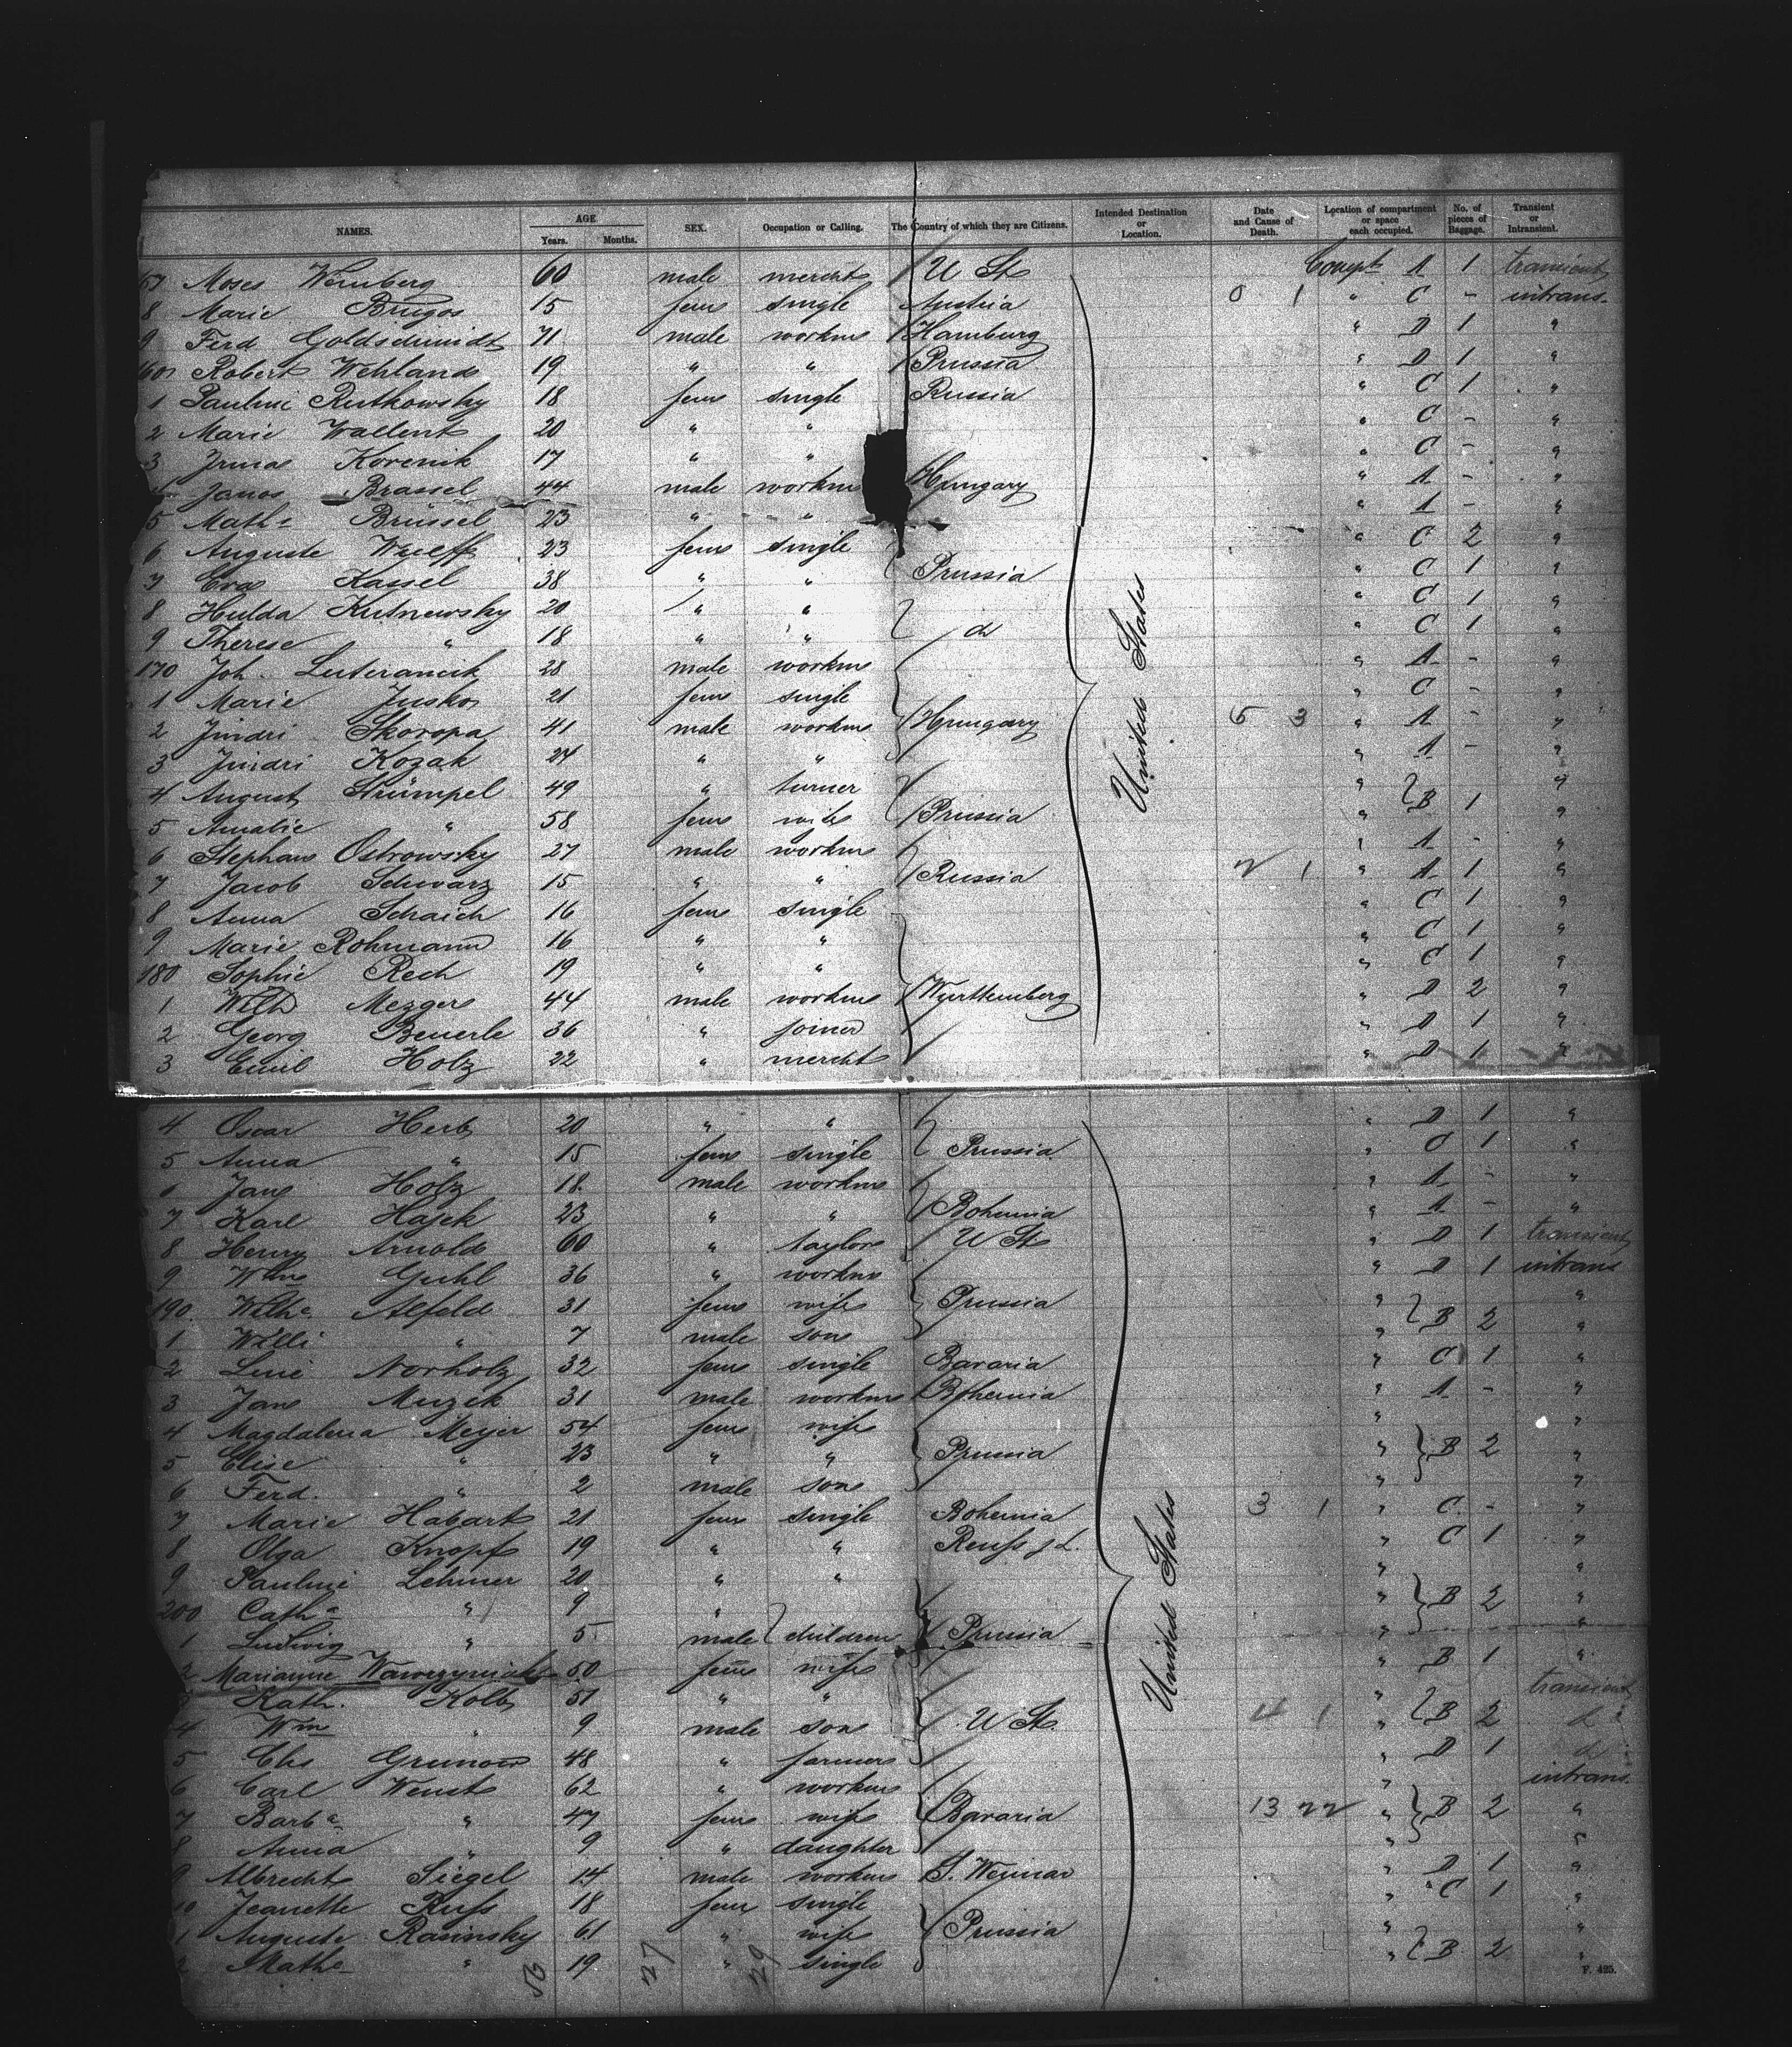 NAMES. AGE. Years. Months. SEX. Occupation or Calling. The Country of which they are Citizens. Intended Destination or Location. Date and Cause of Death. Location of compartment or space each occupied. No. of pieces of Baggage. Transient or Intransient.
57 Moses Weinberg 60 male mercht U St. Compt A 1 transient
8 Marie Brugos 15 fem single Austria 0 1 " C - intrans.
9 Ferd Goldschmidt 71 male workm Hamburg " D 1 "
160 Robert Wehland 19 " " Prussia " D 1 "
1 Pauline Rutkowsky 18 fem single Russia " C 1 "
2 Marie Wallent 20 " " " C - "
3 Irma Korenik 17 " " " C - "
4 Janos Brassel 44 male workm Hungary " A - "
5 Math. Brüssel 23 " " " A - "
6 Auguste Wulff 23 fem single " C 2 "
7 Eva Kassel 38 " " Prussia " C 1 "
8 Hulda Kutnewsky 20 " " " C 1 "
9 Therese " 18 " " do " C 1 "
170 Joh. Luterancik 28 male workm " A - "
1 Marie Jusko 21 fem single " C - "
2 Jindri Skoropa 41 male workm Hungary 5 3 " A - "
3 Jindri Kozak 24 " " " A - "
4 August Stümpel 49 " turner "
5 Amalie " 58 fem wife Prussia " B 1 "
6 Stephan Ostrowsky 27 male workm " A - "
7 Jacob Schwarz 15 " " Russia 2 1 " A 1 "
8 Anna Schaich 16 fem single " C 1 "
9 Marie Rohmann 16 " " " C 1 "
180 Sophie Rech 19 " " " C 1 "
1 Wilh Mezger 44 male workm Württemberg " D 2 "
2 Georg Beuerle 36 " joiner " D 1 "
3 Emil Holz 22 " mercht " D 1 "
United States
4 Oscar Herb 20 " " " D 1 "
5 Anna " 15 fem single Prussia " C 1 "
6 Jan Holz 18 male workm " A - "
7 Karl Hajek 23 " " Bohemia " A - "
8 Henry Arnold 60 " taylor U St. " D 1 transient
9 Wm Guhl 36 " workm " D 1 intrans
190. Wilhe. Alfeld 31 fem wife Prussia " "
1 Willi " 7 male son " B 2 "
2 Line Norholz 32 fem single Bavaria " C 1 "
3 Jan Muzek 31 male workm Bohemia " A - "
4 Magdalena Meyer 54 fem wife " "
5 Elise " 23 " " Prussia " B 2 "
6 Ferd. " 2 male son " "
7 Marie Habart 21 fem single Bohemia 3 1 " C - "
8 Olga Knopf 19 " " Reuss j L. " C 1 "
9 Pauline Lehmer 20 " " " "
200 Cathe " 9 " " B 2 "
1 Ludwig " 5 male children Prussia " "
2 Marianne Wawrzyniak 50 fem wife " B 1 "
3 Kath. Kolb 51 " " " transient
4 Wm " 9 male son U St. 4 1 " B 2 d
5 Chs Grunow 48 " farmer " D 1 d
6 Carl Wenst 62 " workm " intrans.
7 Barba " 47 fem wife Bavaria 13 22 " B 2 "
8 Anna " 9 " daughter " "
9 Albrecht Siegel 14 male workm S. Weimar " D 1 "
10 Jeanette Russ 18 fem single " C 1 "
1 Auguste Rasinsky 61 " wife Prussia " "
2 Math. " 19 " single " B 2 "
United States
56 27 29
F. 425.